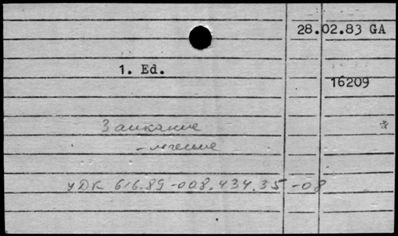 28.02.83 GA
1. Ed.
16209
Заикание
*
- лечение
УДК 616.89-008.434.35-08